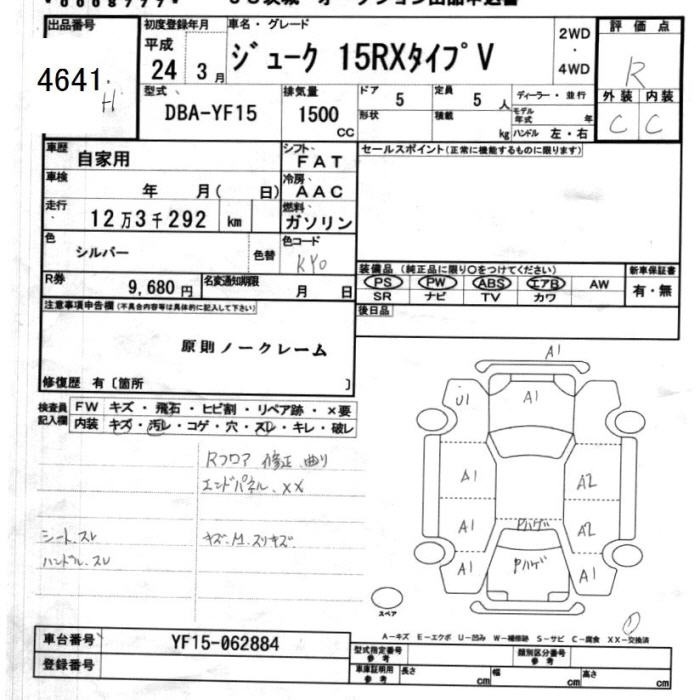 出品番号
4641
H
初度登録年月
平成
24 3月
車名・グレード
ジューク 15RXタイプV
2WD
・
4WD
評価点
R
外装 内装
C C
型式
DBA-YF15
排気量
1500
CC
ドア
5
定員
5 人
形状
積載
kg
ディーラー・並行
モデル年式 年
ハンドル 左・右
車歴
自家用
シフト
FAT
車検
年 月( 日)
冷房
AAC
走行
12万3千292 km
燃料
ガソリン
色
シルバー
色替
色コード
KY0
R券
9,680円
名変通知期限
月 日
セールスポイント(正常に機能するものに限ります)
装備品(純正品に限り○をつけてください)
PS PW ABS エアB AW
SR ナビ TV カワ
新車保証書
有・無
後日品
注意事項申告欄(不具合内容等は具体的に記入して下さい)
原則ノークレーム
修復歴 有〔箇所 〕
検査員記入欄
FW キズ・飛石・ヒビ割・リペア跡・×要
内装 キズ・汚レ・コゲ・穴・スレ・キレ・破レ
Rフロア 修正 曲り
エンドパネル、XX
シート、スレ
ハンドル、スレ
キズ、凹、スリキズ
A1
A1
U1
A1
A2
A1
A2
Pハゲ
A1
Pハゲ
A1
スペア
1
A-キズ E-エクボ U-凹み W-補修跡 S-サビ C-腐食 XX-交換済
車台番号
YF15-062884
登録番号
型式指定番号
参考
類別区分番号
参考
車庫証明用
参考
長さ cm
幅 cm
高さ cm